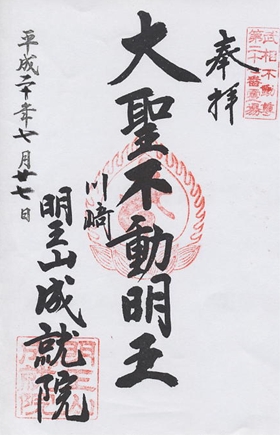 武相不動尊
第二十一番霊場
奉拝
大聖不動明王
川崎
明王山成就院
平成二十年七月廿七日
明王山
成就院